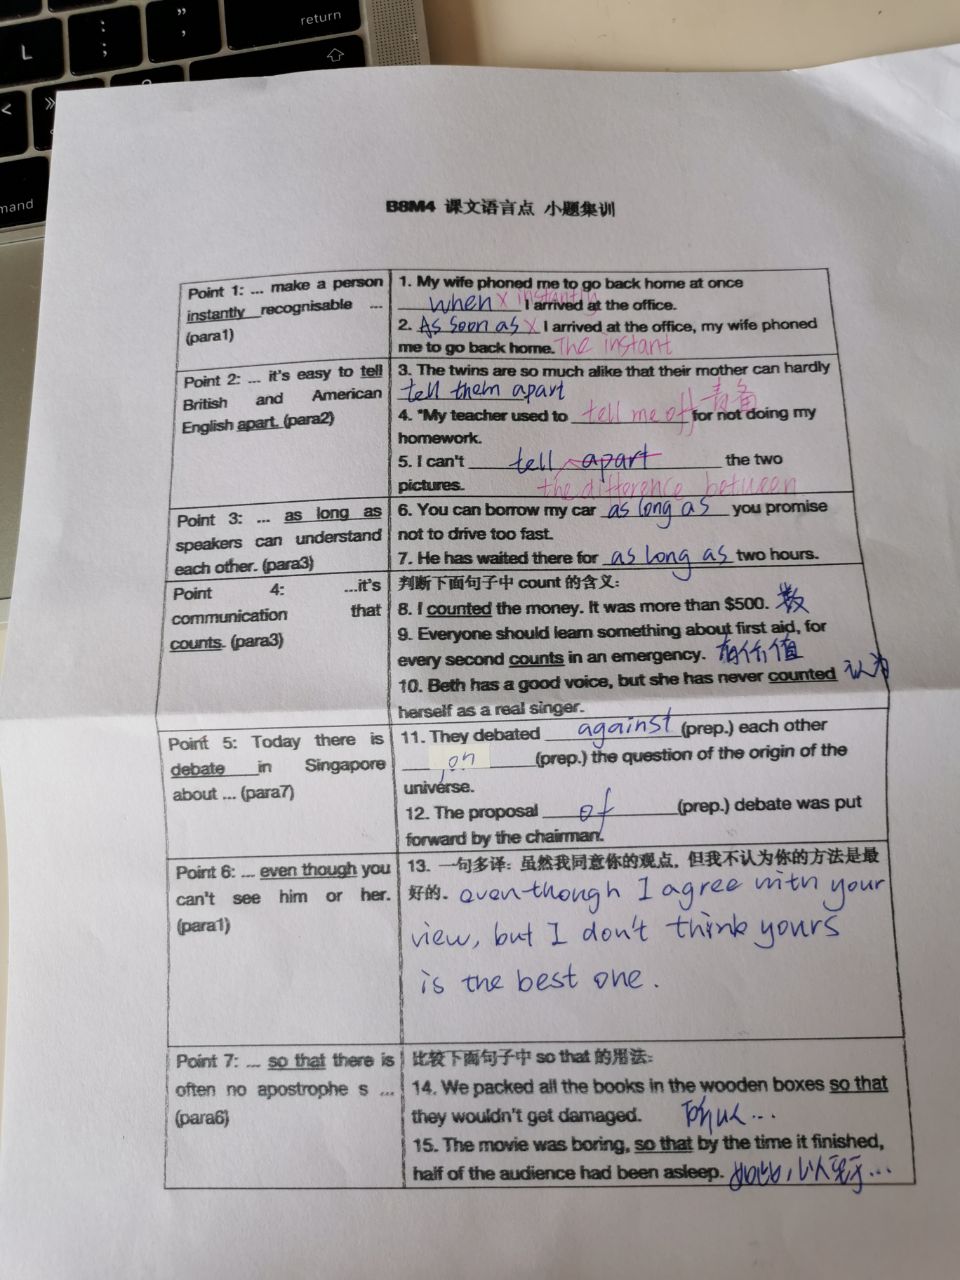 return
L
:
;
”
’
<
mand
B8M4 课文语言点 小题集训
Point 1: ... make a person
instantly recognisable ...
(para1)
1. My wife phoned me to go back home at once
when × instantly I arrived at the office.
2. As soon as × I arrived at the office, my wife phoned
me to go back home. The instant
Point 2: ... it's easy to tell
British and American
English apart. (para2)
3. The twins are so much alike that their mother can hardly
tell them apart
4. *My teacher used to tell me off 责备 for not doing my
homework.
5. I can't tell apart the two
pictures. the difference between
Point 3: ... as long as
speakers can understand
each other. (para3)
6. You can borrow my car as long as you promise
not to drive too fast.
7. He has waited there for as long as two hours.
Point 4: ...it's
communication that
counts. (para3)
判断下面句子中 count 的含义：
8. I counted the money. It was more than $500. 数
9. Everyone should learn something about first aid, for
every second counts in an emergency. 有价值
10. Beth has a good voice, but she has never counted 认为
herself as a real singer.
Point 5: Today there is
debate in Singapore
about ... (para7)
11. They debated against (prep.) each other
on (prep.) the question of the origin of the
universe.
12. The proposal of (prep.) debate was put
forward by the chairman.
Point 6: ... even though you
can't see him or her.
(para1)
13. 一句多译：虽然我同意你的观点，但我不认为你的方法是最
好的。 even though I agree with your
view, but I don't think yours
is the best one.
Point 7: ... so that there is
often no apostrophe s ...
(para6)
比较下面句子中 so that 的用法：
14. We packed all the books in the wooden boxes so that
they wouldn't get damaged. 所以...
15. The movie was boring, so that by the time it finished,
half of the audience had been asleep. 如此，以至于...